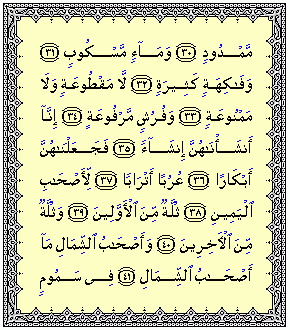 مَّمْدُودٍ ٣٠ وَمَآءٍ مَّسْكُوبٍ ٣١
وَفَٰكِهَةٍ كَثِيرَةٍ ٣٢ لَّا مَقْطُوعَةٍ وَلَا
مَمْنُوعَةٍ ٣٣ وَفُرُشٍ مَّرْفُوعَةٍ ٣٤ إِنَّآ
أَنشَأْنَٰهُنَّ إِنشَآءً ٣٥ فَجَعَلْنَٰهُنَّ
أَبْكَارًا ٣٦ عُرُبًا أَتْرَابًا ٣٧ لِّأَصْحَٰبِ
ٱلْيَمِينِ ٣٨ ثُلَّةٌ مِّنَ ٱلْأَوَّلِينَ ٣٩ وَثُلَّةٌ
مِّنَ ٱلْأَخِرِينَ ٤٠ وَأَصْحَٰبُ ٱلشِّمَالِ مَآ
أَصْحَٰبُ ٱلشِّمَالِ ٤١ فِى سَمُومٍ